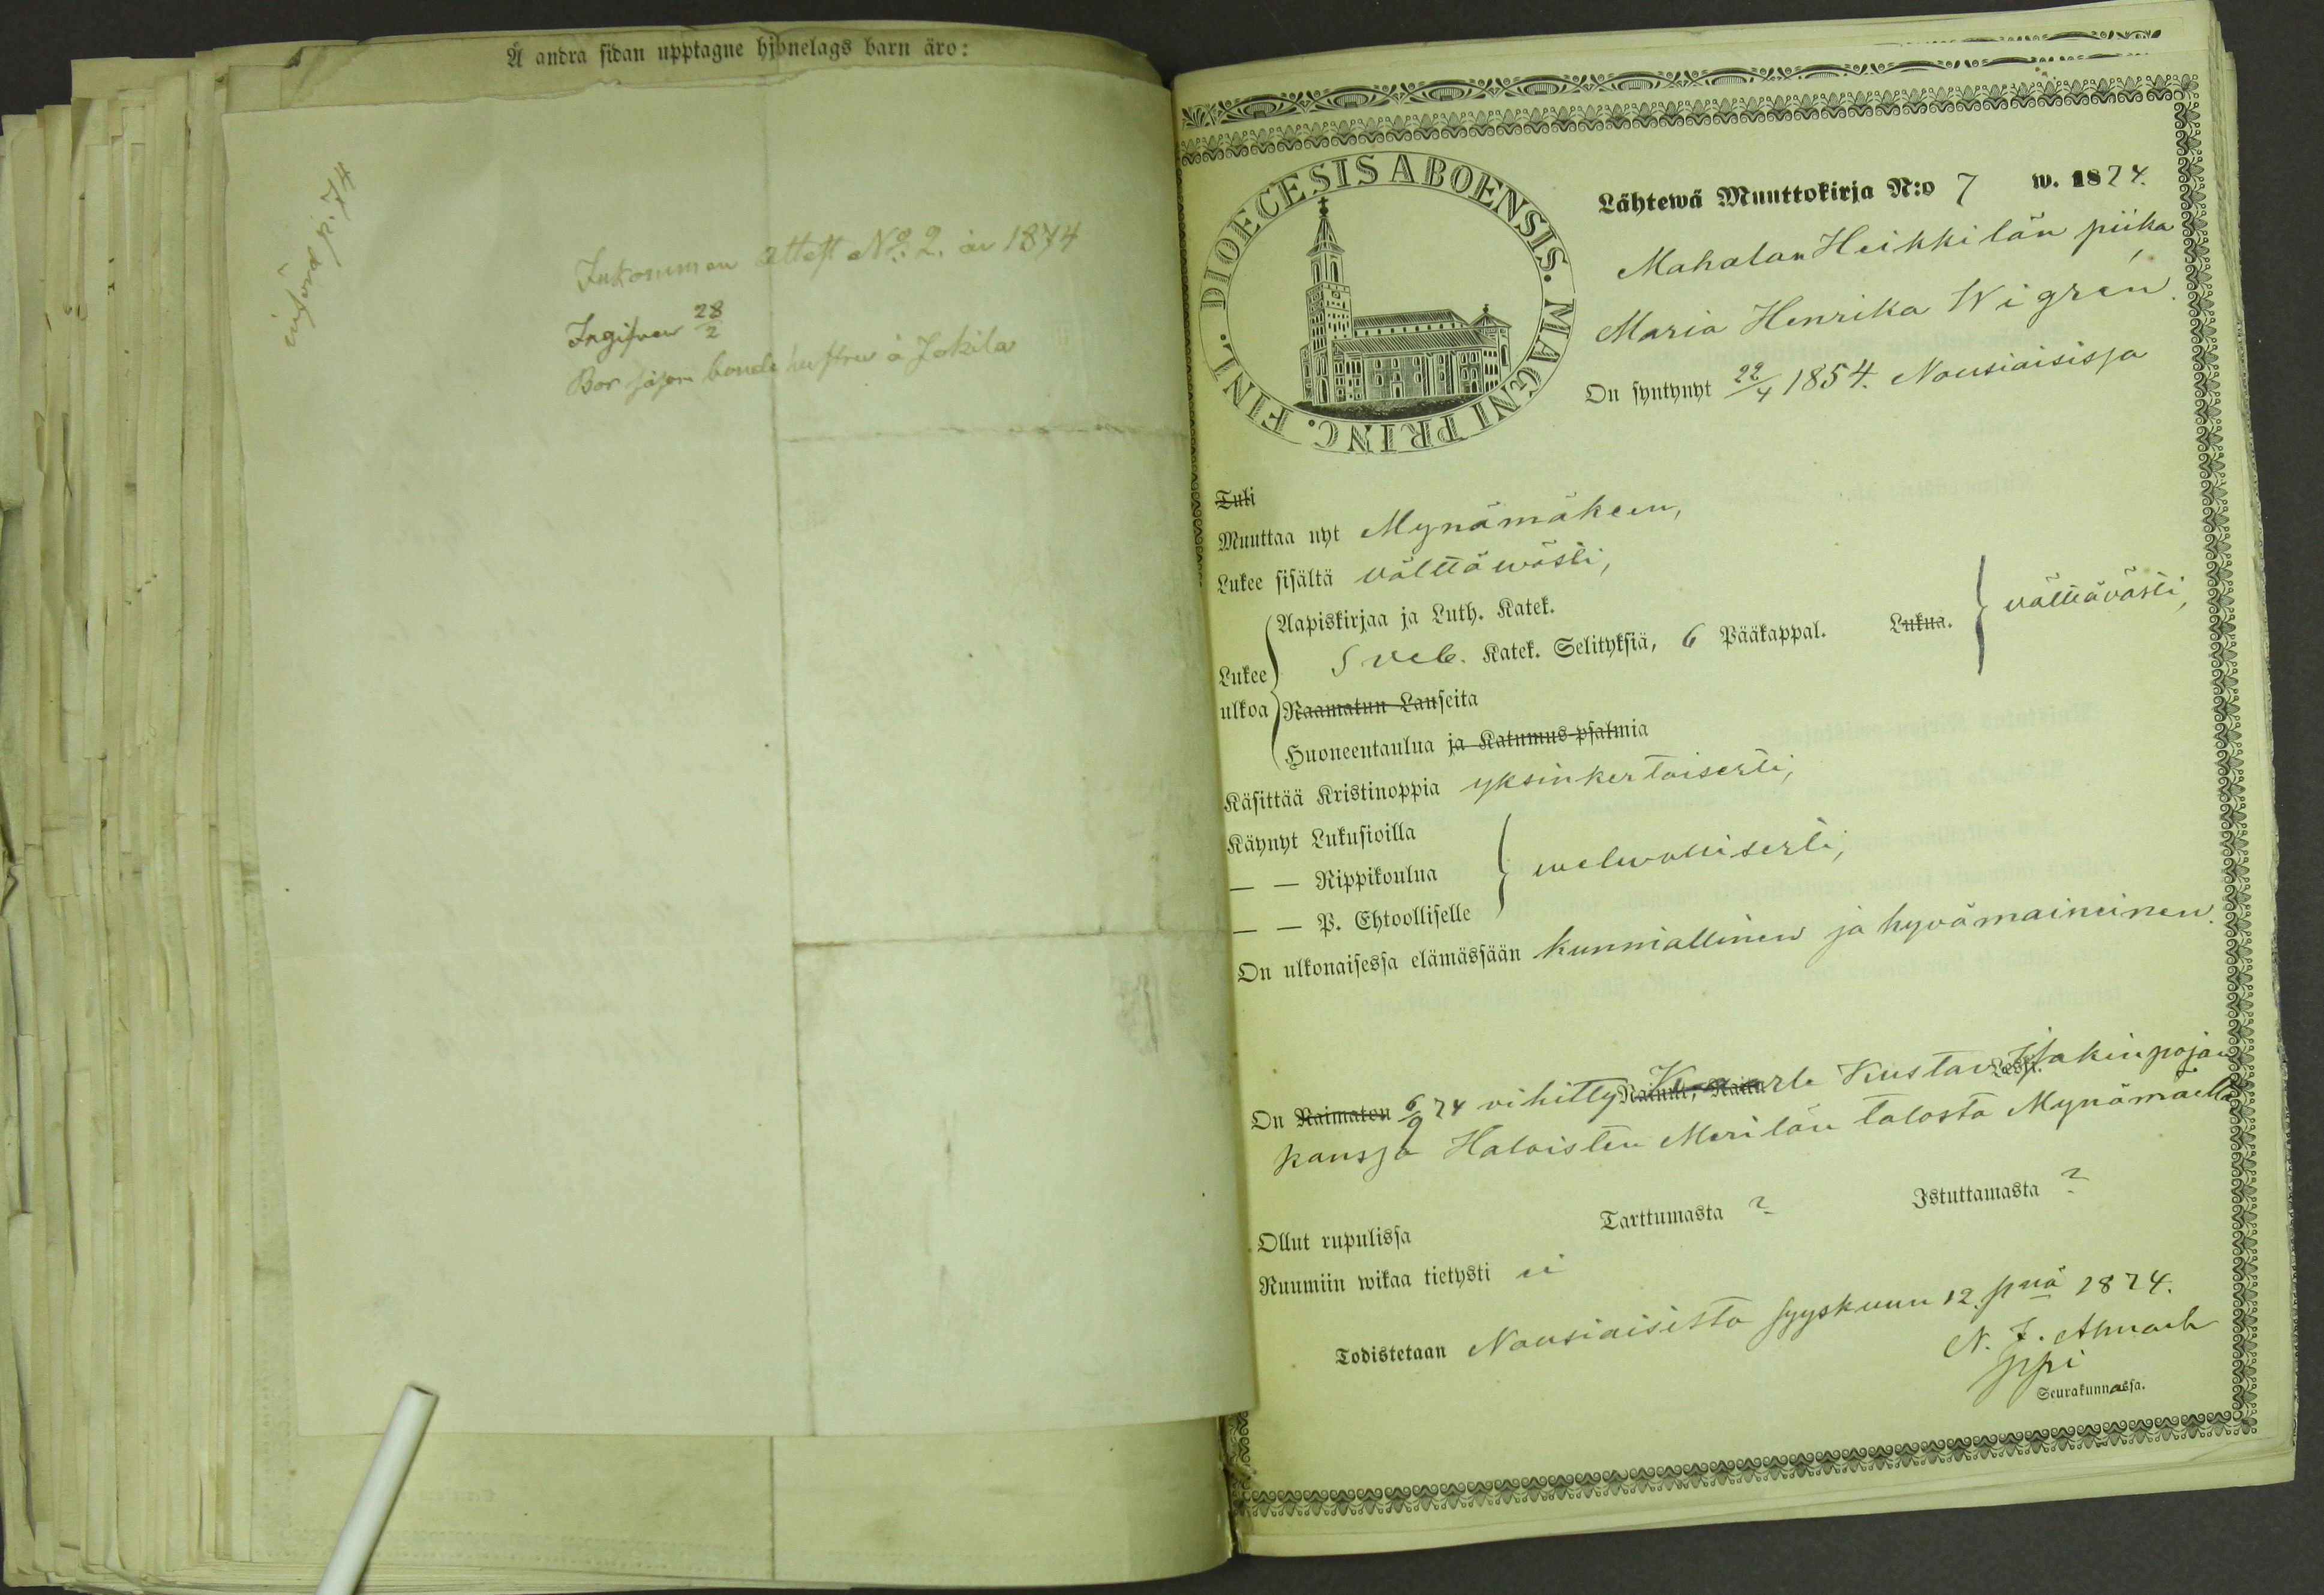 Å andra sidan upptagne hjonelags barn äro:
införd p. 74
Inkommen attest No: 2. år 1874
Ingifven 28/2
Bor såsom bonde hustru å Jokila
DIOECESIS ABOENSIS. MAGNI PRINC. FINL.
Lähtewä Muuttokirja N:o 7 w. 1874.
Mahalan Heikkilän piika
Maria Henrika Wigrén.
On syntynyt 22/4 1854. Nousiaisissa
Tuli
Muuttaa nyt Mynämäkeen,
Lukee sisältä välttäwästi,
Aapiskirjaa ja Luth. Katek.
Lukee ulkoa Sveb. Katek. Selityksiä, 6 Pääkappal. Lukua. välttävästi,
Raamatun Lauseita
Huoneentaulua ja Katumus-psalmia
Käsittää Kristinoppia yksinkertaisesti,
Käynyt Lukusioilla
— — Rippikoulua welwollisesti,
— — P. Ehtoolliselle
On ulkonaisessa elämässään kunniallinen ja hyvämaineinen.
On Naimaton 6/9 74 vihitty Kaarle Kustav Isakinpojan
kanssa Haloisten Merilän talosta Mynämäellä
Ollut rupulissa Tarttumasta ? Istuttamasta ?
Ruumiin wikaa tietysti ei
Todistetaan Nousiaisista syyskuun 12. pnä 1874.
N. J.
Seurakunnassa.